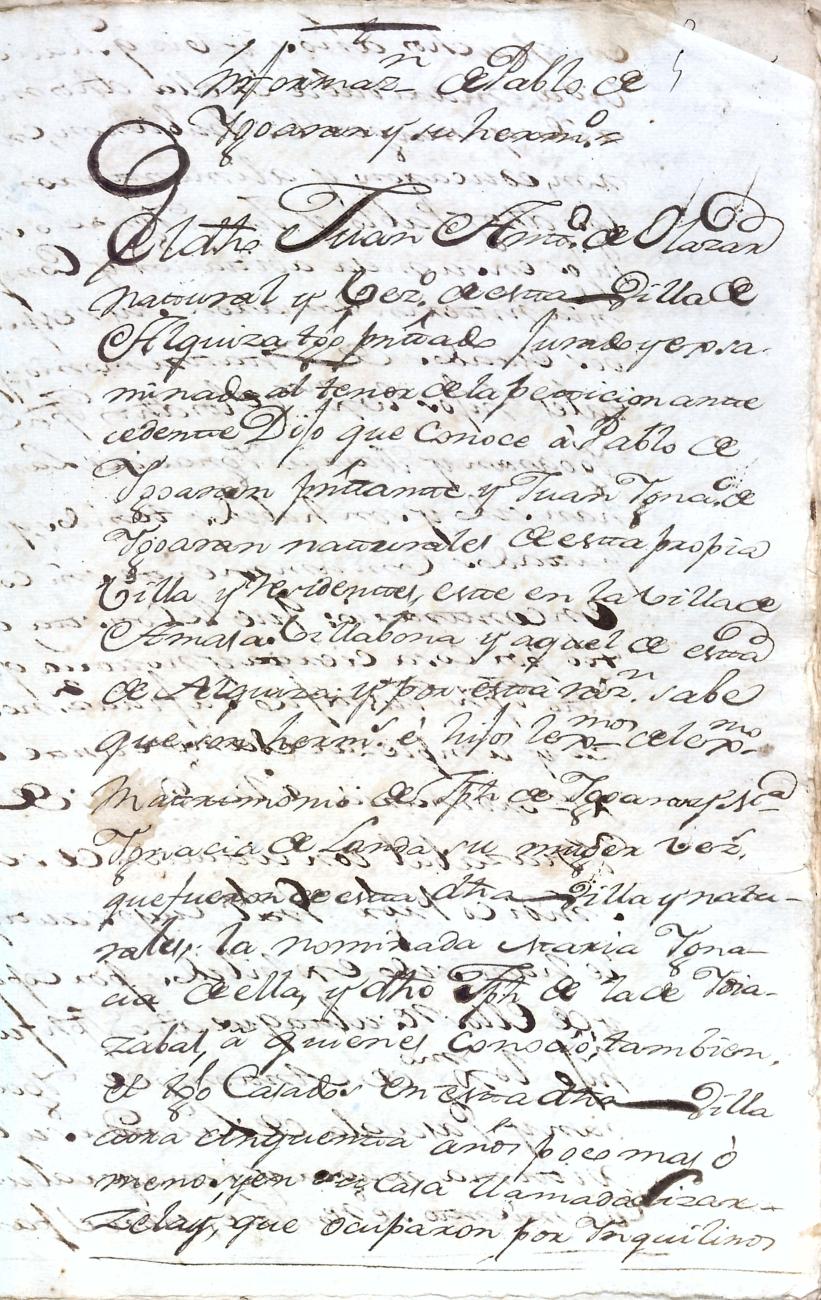 Informaz.n de Pablo de
Ygoaran y su herm.o
El dho Juan Anto. de Olazaval
natural y Vez.o de estta Villa de
Alquiza tgo pnttado jurado y exsa-
minado al tenor de la petticion antte
cedentte Dijo que conoce à Pablo de
Ygoaran pnttantte y Juan Ygna.o de
Ygoaran natturales de estta propia
Villa y residenttes, estte en la Villa de
Amasa Villabona y aquel de estta
de Alquiza y por estta razn. sabe
que son herm.s è hijos lexmos. de lexmo.
Mattrimonio de Jph de Ygoaran y Ma.
Ygnacia de Landa su muger vez.s
que fueron de estta dha Villa y natu-
rales, la nominada Maria Ygna-
cia de ella, y dho Jph de la de Ydia-
zabal, à quienes conociò, tambien,
el tgo Casados en estta dha Villa
cinquentta años poco mas ò
menos, y en su Casa llamada Lizar-
zelay, que ocuparon por Ynquilinos